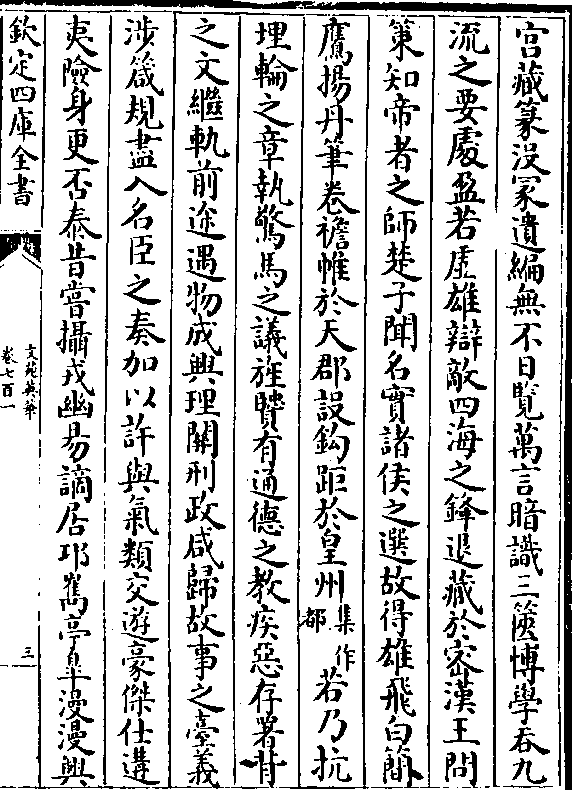 宫藏篆没冡遺編無不日覧萬言暗識三篋博學呑九
流之要處盈若虚雄辯敵四海之鋒退藏於宻漢王問
策知帝者之師楚子聞名實諸侯之選故得雄飛白簡
鷹揚丹筆卷襜帷於天郡設鈎距於皇州集作都若乃抗
埋輪之章執驚馬之議旌賢有通德之教疾惡存署背
之文繼軌前途遇物成興理關刑政咸歸故事之臺義
涉箴規盡入名臣之奏加以許與氣類交遊豪傑仕遘
夷險身更否泰昔嘗攝戎幽易謫居邛嶲亭臯漫漫興
欽定四庫全書
文苑英華
卷七百一
三